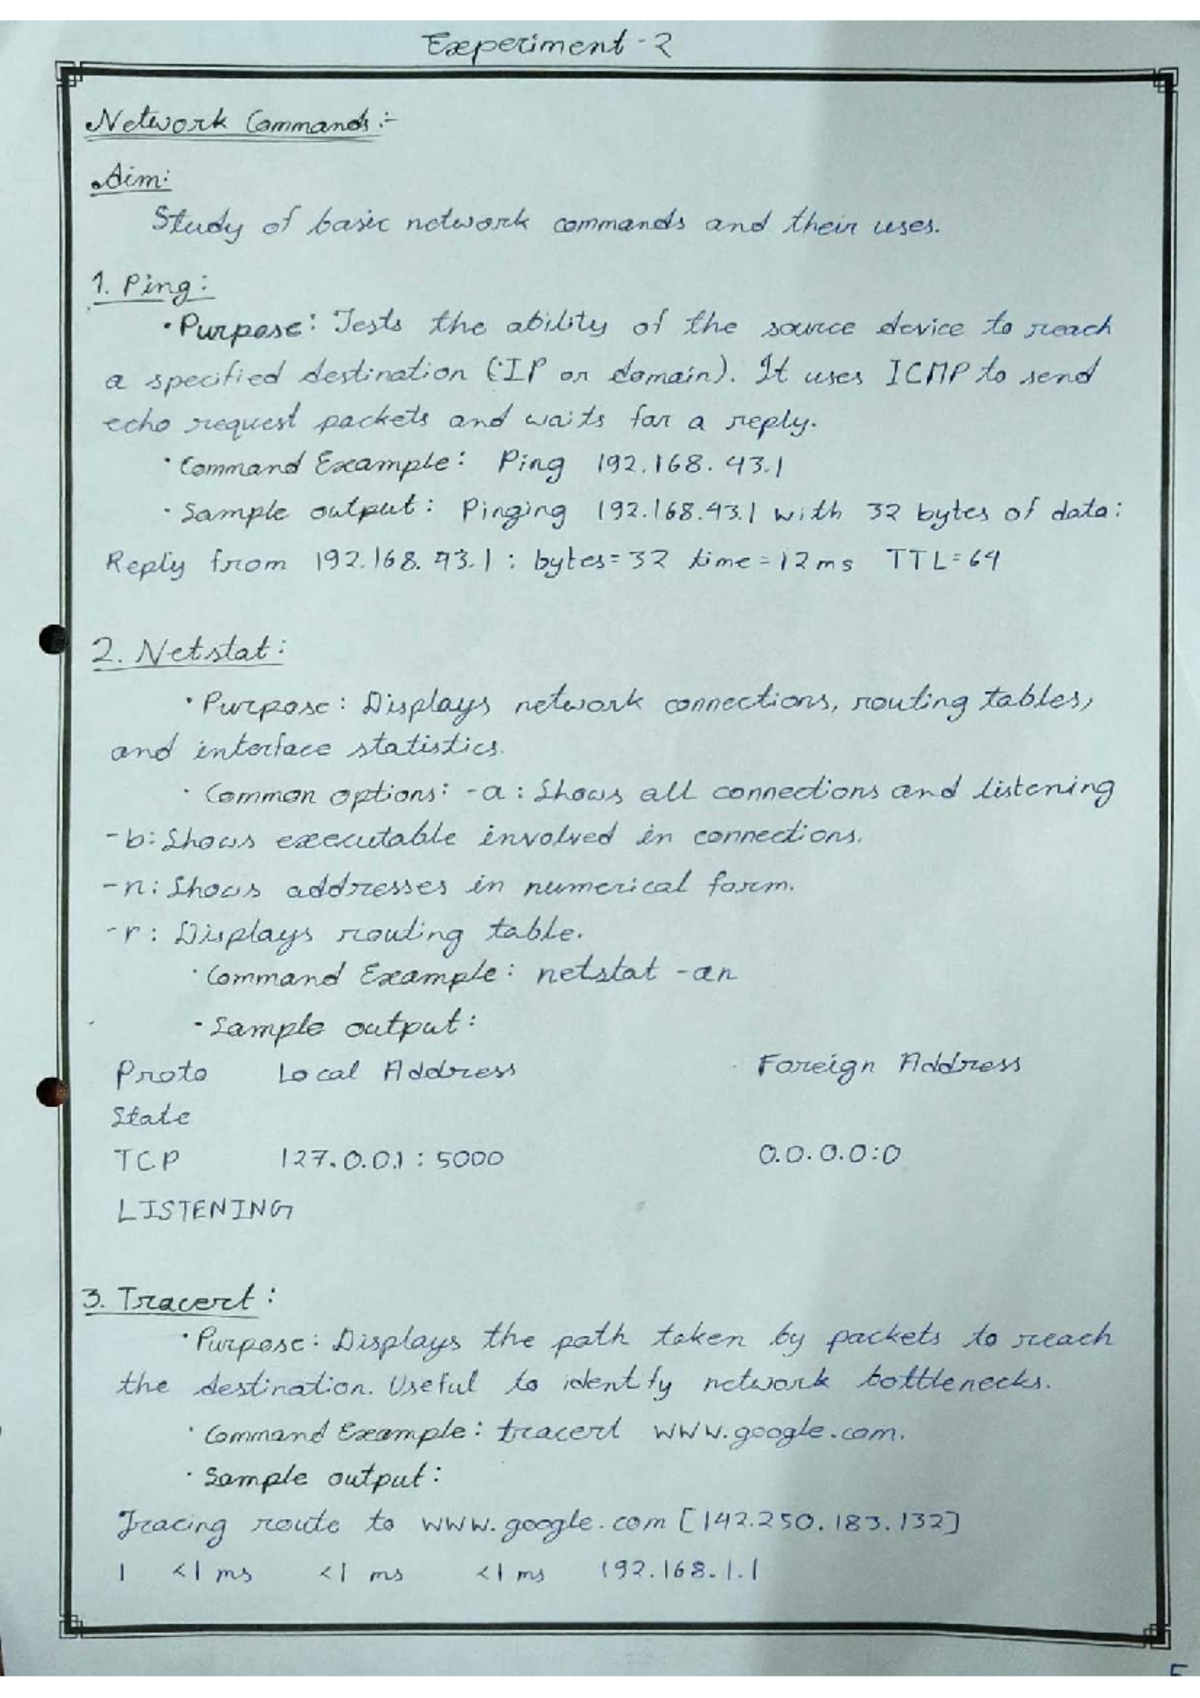 Experiment - 2
Network Commands :-
Aim:
Study of basic network commands and their uses.
1. Ping :
• Purpose: Tests the ability of the source device to reach
a specified destination (IP or domain). It uses ICMP to send
echo request packets and waits for a reply.
• Command Example: Ping 192.168.43.1
• Sample output: Pinging 192.168.43.1 with 32 bytes of data:
Reply from 192.168.43.1 : bytes=32 time=12ms TTL=64
2. Netstat:
• Purpose: Displays network connections, routing tables,
and interface statistics.
• Common options: -a : Shows all connections and listening
-b: Shows executable involved in connections.
-n: Shows addresses in numerical form.
-r: Displays routing table.
• Command Example: netstat -an
• Sample output:
Proto Local Address Foreign Address
State
TCP 127.0.0.1 : 5000 0.0.0.0:0
LISTENING
3. Tracert :
• Purpose: Displays the path taken by packets to reach
the destination. Useful to identify network bottlenecks.
• Command Example: tracert www.google.com.
• Sample output:
Tracing route to www.google.com [142.250.183.132]
1 <1 ms <1 ms <1 ms 192.168.1.1